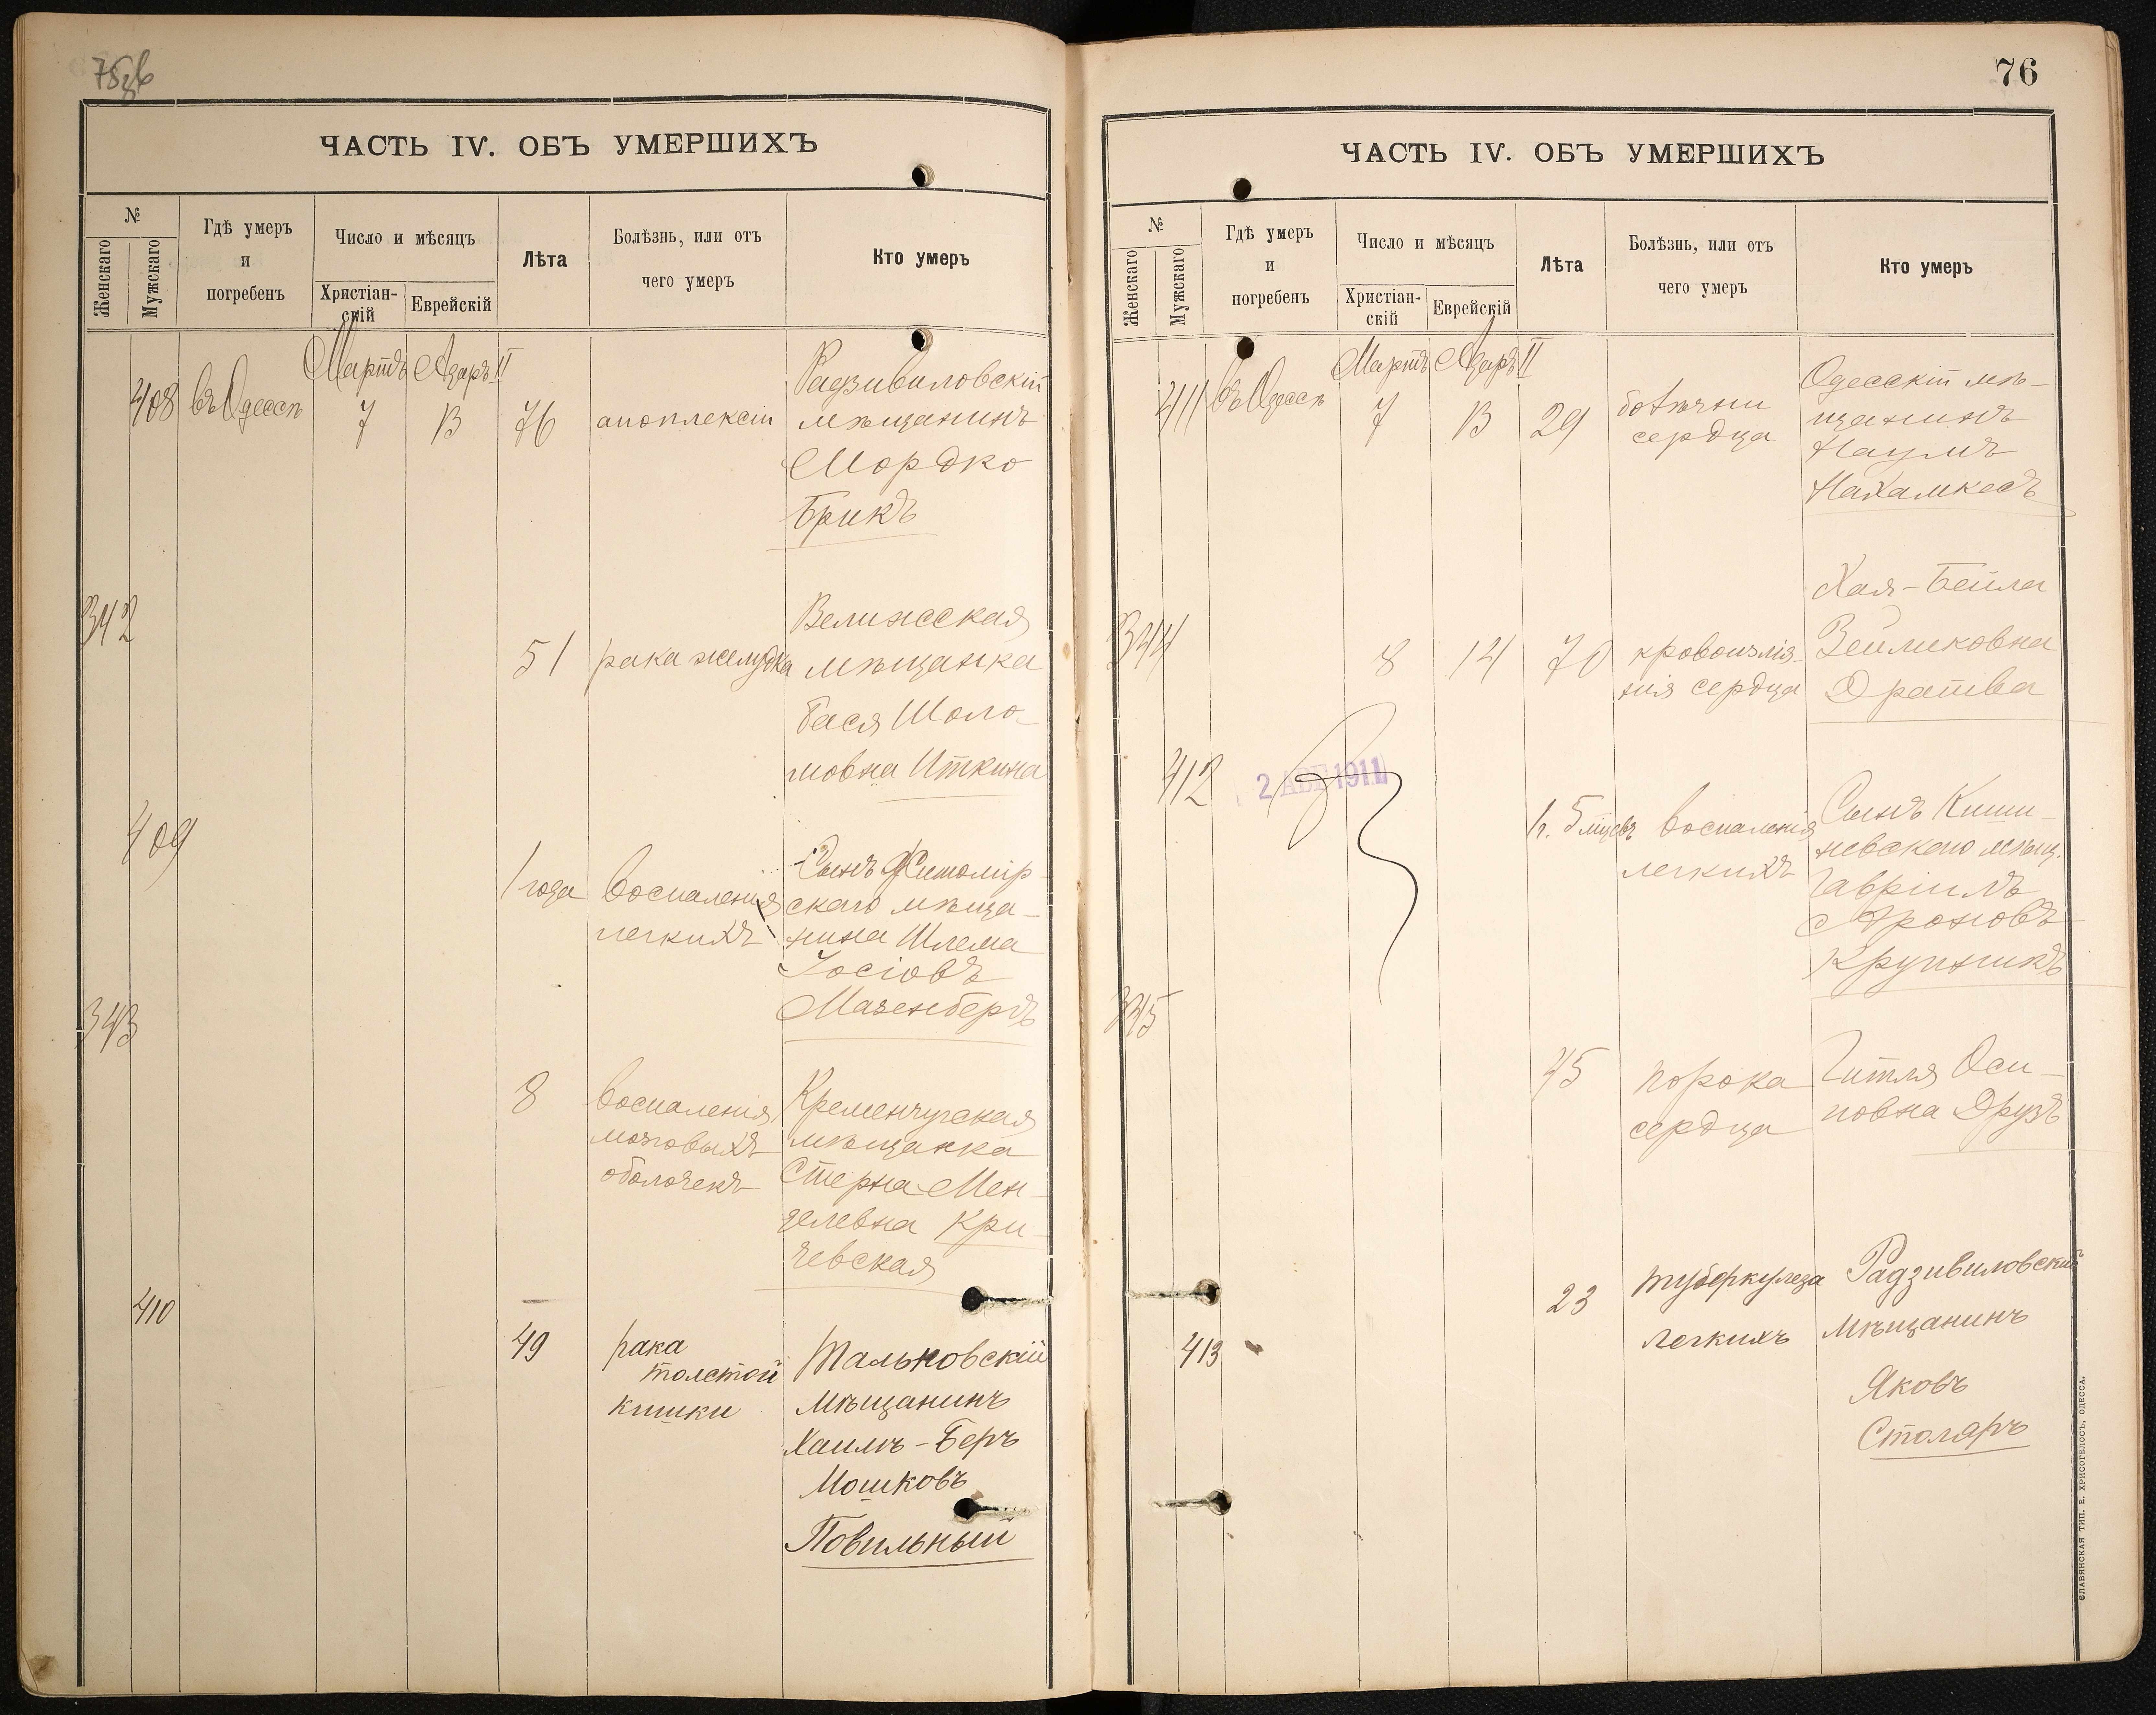 75об
ЧАСТЬ IV. ОБЪ УМЕРШИХЪ
№
Женскаго
Мужскаго
Гдѣ умеръ
и
погребенъ
Число и мѣсяцъ
Христіан-
скій
Еврейскій
Лѣта
Болѣзнь, или отъ
чего умеръ
Кто умеръ
Мартъ Адаръ II
408 въ Одессѣ 7 13 76 апоплексіи
Радзивиловскій
мѣщанинъ
Мордко
Брикъ
342
51 рака желудка
Велижсская
мѣщанка
Бася Шоло-
мовна Иткина
409
1 года воспаленія
легкихъ
Сынъ Житомір-
скаго мѣща-
нина Шлема
Іосіовъ
Мазенбергъ
343
8 воспаленія
мозговыхъ
оболочекъ
Кременчугская
мѣщанка
Стерна Мен-
делевна Кри-
чевская
410
49 рака
толстой
кишки
Тальновскій
мѣщанинъ
Хаимъ-Беръ
Мошковъ
Повильный
76
ЧАСТЬ IV. ОБЪ УМЕРШИХЪ
№
Женскаго
Мужскаго
Гдѣ умеръ
и
погребенъ
Число и мѣсяцъ
Христіан-
скій
Еврейскій
Лѣта
Болѣзнь, или отъ
чего умеръ
Кто умеръ
Мартъ Адаръ II
411 въ Одессѣ 7 13 29 болѣзни
сердца
Одесскій мѣ-
щанинъ
Наумъ
Нахамкесъ
344 8 14 70 кровоизлія-
нія сердца
Хая-Бейла
Зейликовна
Дратва
412
2 АВГ 1911
1 г. 5 мѣсцевъ воспаленія
легкихъ
Сынъ Киши-
невскаго мѣщ.
Гавріилъ
Ароновъ
Крупникъ
345
45 порока
сердца
Гитля Оси-
повна Друзъ
413
23 туберкулеза
легкихъ
Радзивиловскій
мѣщанинъ
Яковъ
Столяръ
СЛАВЯНСКАЯ ТИП. Е. ХРИСОГЕЛОСЪ, ОДЕССА.